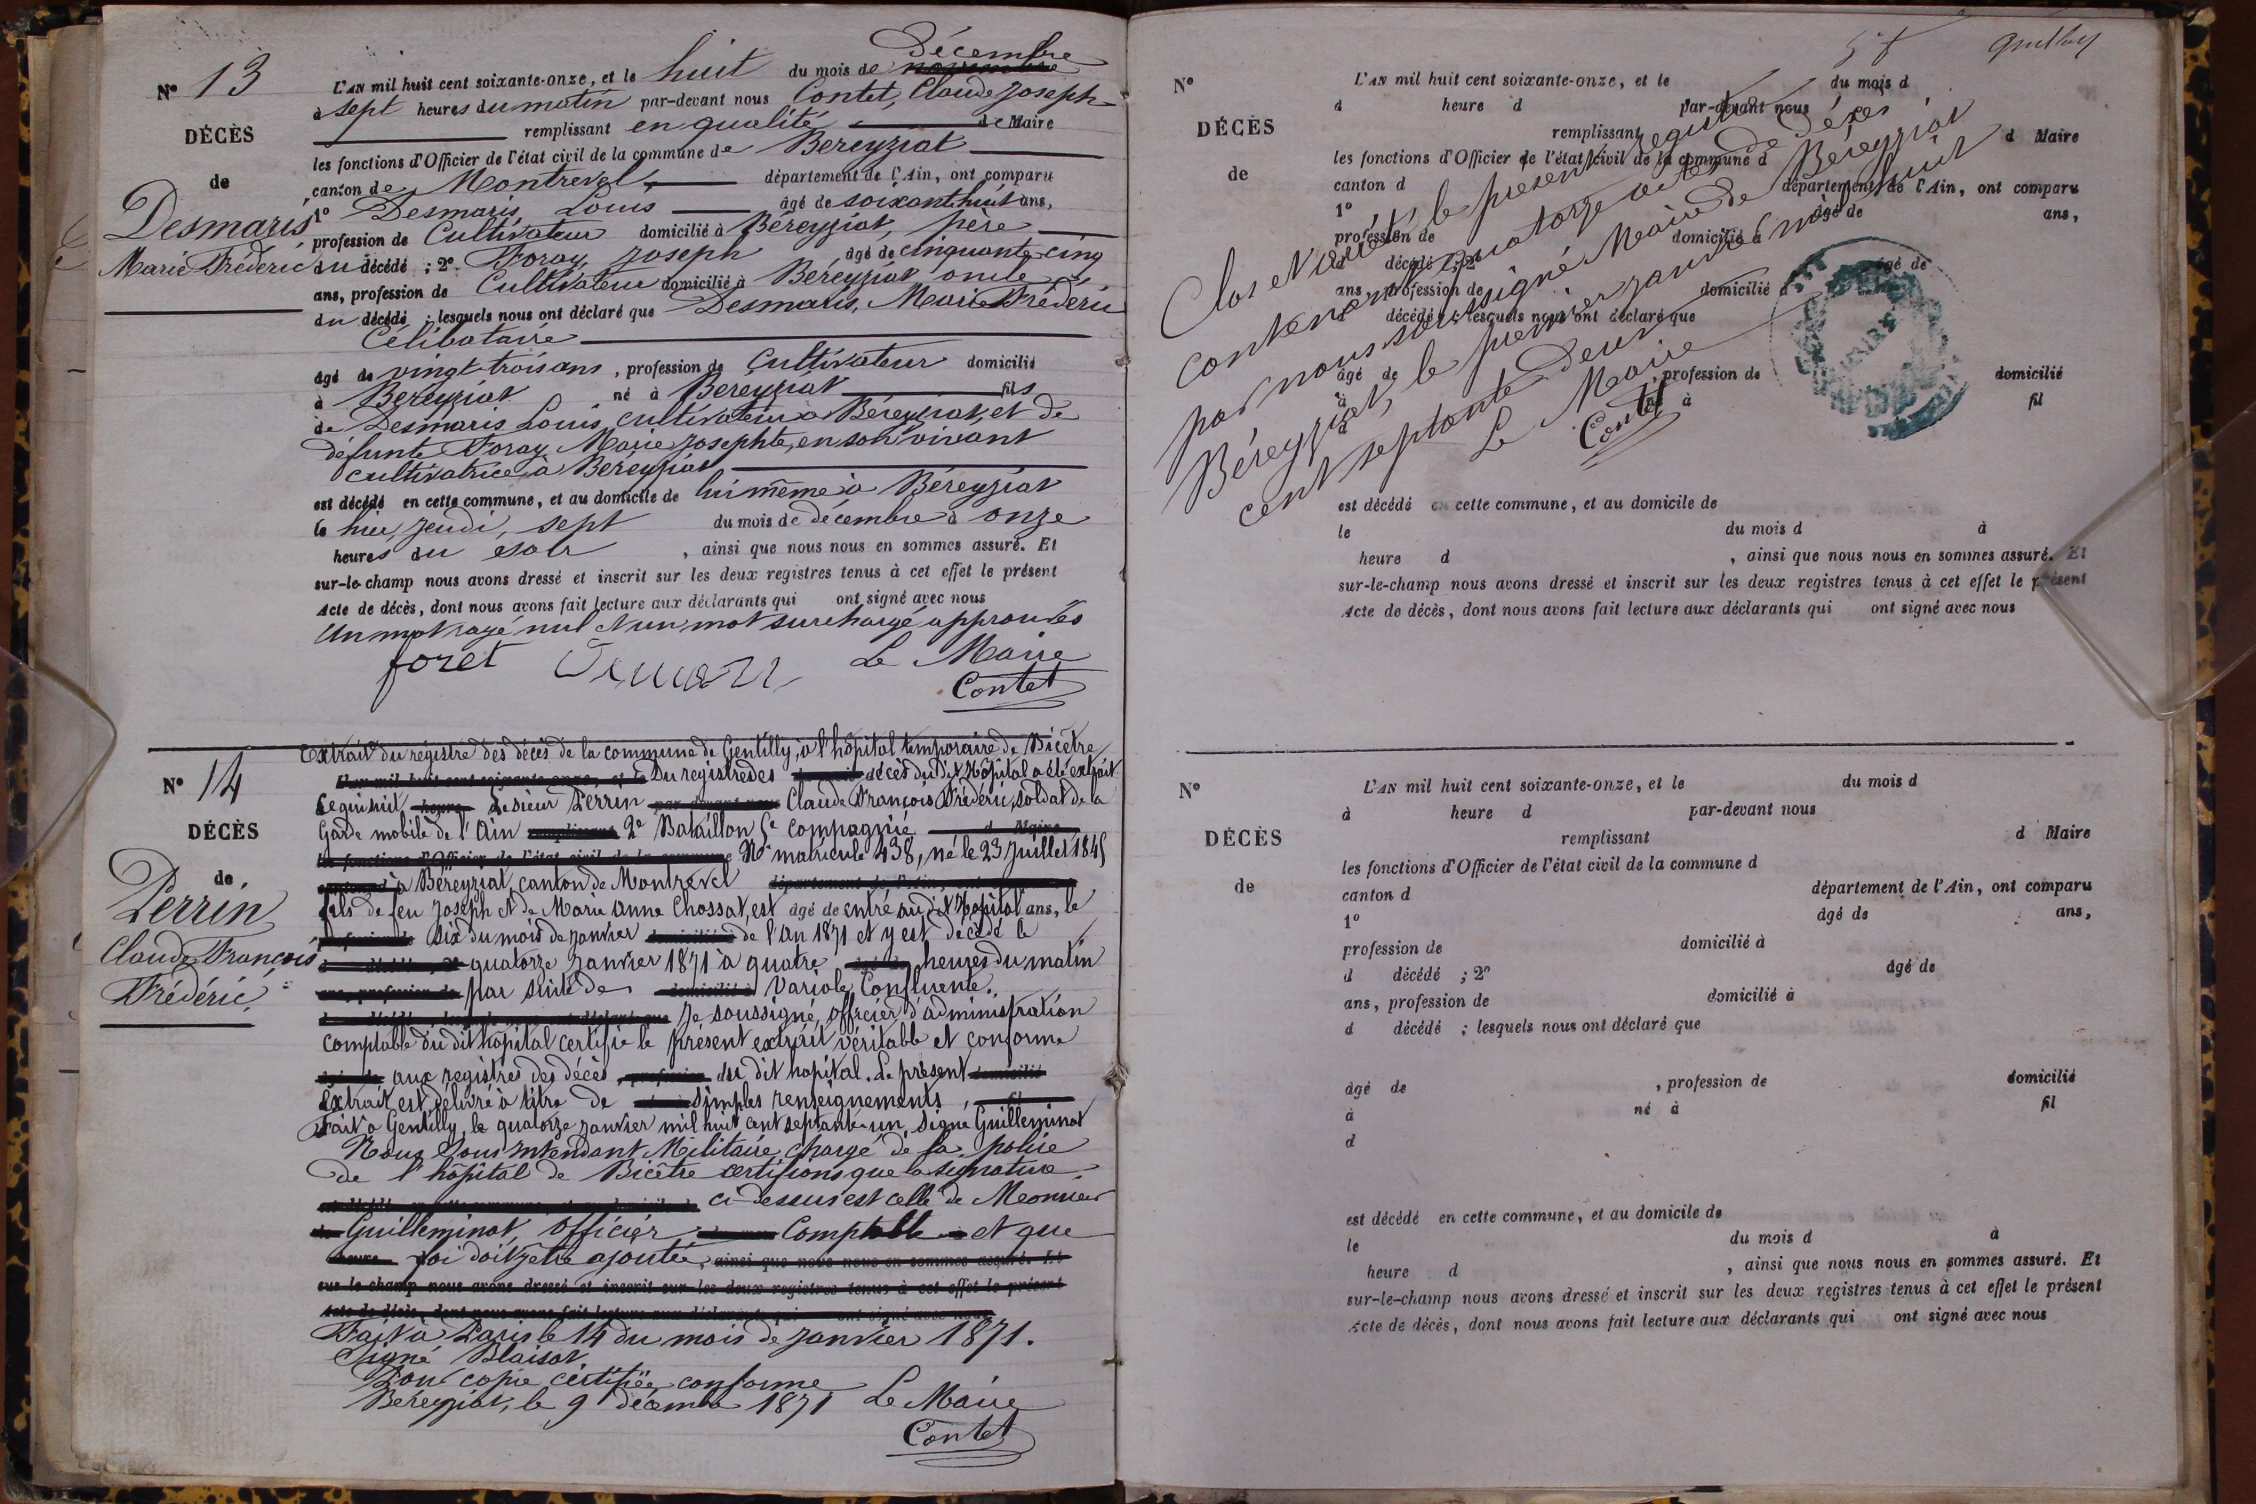 N° 13
DÉCÈS
de
Desmaris
Marie Fréderic
L'AN mil huit cent soixante-onze, et le huit du mois de novembre Décembre
à sept heures du matin par-devant nous Contet, Claude Joseph
remplissant en qualité de Maire
les fonctions d'Officier de l'état civil de la commune de Bereyziat
canton de Montrevel, département de l'Ain, ont comparu
1° Desmaris Louis âgé de soixant huit ans,
profession de Cultivateur domicilié à Béreyziat, père
du décédé ; 2° Foray Joseph âgé de cinquante-cinq
ans, profession de Cultivateur domicilié à Béreyziat oncle
du décédé ; lesquels nous ont déclaré que Desmaris, Marie Fréderic
Célibataire
âgé de vingt-trois ans, profession de Cultivateur domicilié
à Béreyziat né à Bereyziat fils
de Desmaris Louis, cultivateur à Béreyziat, et de
défunte Foray Marie Josephte, en son vivant
cultivatrice à Bereyziat
est décédé en cette commune, et au domicile de lui même à Béreyziat
le hier, jeudi, sept du mois de décembre à onze
heures du soir, ainsi que nous nous en sommes assuré. Et
sur-le-champ nous avons dressé et inscrit sur les deux registres tenus à cet effet le présent
Acte de décès, dont nous avons fait lecture aux déclarants qui ont signé avec nous
Un mot rayé nul et un mot surchargé approuvés
foret Le Maire
Contet
N° 14
DÉCÈS
de
Perrin
Claude François
Frédéric
Extrait du régistre des décès de la commune de Gentilly, à l'hôpital temporaire de Bicêtre
L'an mil huit cent soixante-onze, et le Du registre des décès du dit Hôpital a été extrait
ce qui suit, heure Le sieur Perrin par-devant nous Claude François Frédéric, soldat de la
Garde mobile de l'Ain remplissant 2e Bataillon 5e Compagnie d Maire
les fonctions d'Officier de l'état civil de la commune No matricule 438, né le 23 Juillet 1845
canton d à Béreyziat, canton de Montrevel département de l'Ain, ont
fils de feu Joseph et de Marie Anne Chossat, est âgé de entré au dit Hôpital ans, le
profession de six du mois de janvier domicilié de l'an 1871 et y est décédé le
d décédé, 2° quatorze janvier 1871 à quatre âgé de heures du matin
ans, profession de par suite de domicilié à Variole Confluente.
d décédé, lesquels nous ont déclaré que Je soussigné, officier d'administration
comptable du dit hôpital certifie le présent extrait véritable et conforme
âgé de aux registres des décès, profession du dit hôpital. Le présent domicilié
extrait est délivré à titre de simples renseignements, fil
Fait à Gentilly, le quatorze janvier mil huit cent septante-un, signé Guilleminot
Nous Sous Intendant Militaire chargé de la police
de l'hôpital de Bicêtre certifions que la signature
ci-dessus est celle de Monsieur
Guilleminot, officier Comptable et que
heure foi doit y être ajoutée, ainsi que nous nous en sommes assuré. Et
sur-le-champ nous avons dressé et inscrit sur les deux registres tenus à cet effet le présent
Acte de décès, dont nous avons fait lecture aux déclarants qui ont signé avec nous
Fait à Paris le 14 du mois de janvier 1871.
Signé Blaisot
Pour copie certifiée conforme
Béreyziat, le 9 décembre 1871 Le Maire
Contet
N°
DÉCÈS
de
L'AN mil huit cent soixante-onze, et le du mois d
à heure d par-devant nous
remplissant d Maire
les fonctions d'Officier de l'état civil de la commune d
canton d département de l'Ain, ont comparu
1° âgé de ans,
profession de domicilié à
d décédé ; 2° âgé de
ans, profession de domicilié à
d décédé ; lesquels nous ont déclaré que
âgé de , profession de domicilié
à né à fil
d
est décédé en cette commune, et au domicile de
le du mois d à
heure d , ainsi que nous nous en sommes assuré. Et
sur-le-champ nous avons dressé et inscrit sur les deux registres tenus à cet effet le présent
Acte de décès, dont nous avons fait lecture aux déclarants qui ont signé avec nous
Clos et arrêté le présent registre
contenant quatorze actes de décès
par nous soussigné Maire de Béreyziat
Béreyziat, le premier janvier mil huit
cent septante deux
Le Maire
Contet
MAIRIE
N°
DÉCÈS
de
L'AN mil huit cent soixante-onze, et le du mois d
à heure d par-devant nous
remplissant d Maire
les fonctions d'Officier de l'état civil de la commune d
canton d département de l'Ain, ont comparu
1° âgé de ans,
profession de domicilié à
d décédé ; 2° âgé de
ans, profession de domicilié à
d décédé ; lesquels nous ont déclaré que
âgé de , profession de domicilié
à né à fil
d
est décédé en cette commune, et au domicile de
le du mois d à
heure d , ainsi que nous nous en sommes assuré. Et
sur-le-champ nous avons dressé et inscrit sur les deux registres tenus à cet effet le présent
Acte de décès, dont nous avons fait lecture aux déclarants qui ont signé avec nous